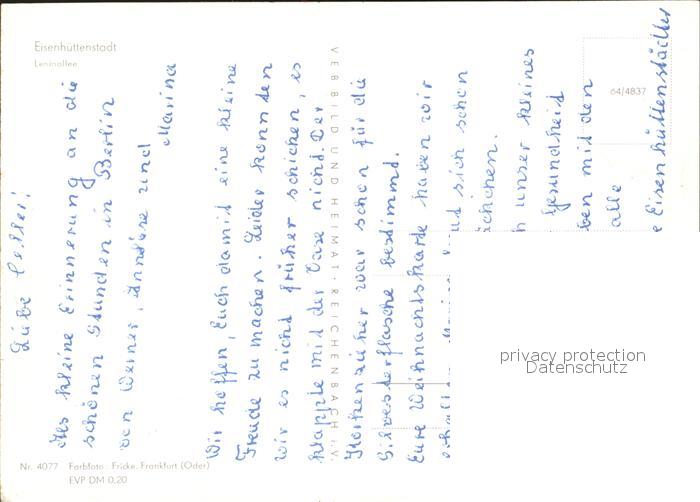 Eisenhüttenstadt
Leninallee
64/4837
VERBBILD UND HEIMAT REICHENBACH i. V.
Nr. 4077 Farbfoto: Fricke, Frankfurt (Oder)
EVP DM 0,20
privacy protection
Datenschutz
Liebe
Als kleine Erinnerung an die
schönen Stunden in Berlin
von Werner, und
Marina
Wir hoffen, Euch damit eine kleine
Freude zu machen. Leider konnten
wir es nicht früher schicken, es
klappte mit der Vase nicht. Der
Korkenzieher war schon für die
Silvesterflasche bestimmd.
Eure Weihnachtskarte haben wir
und sich schon
ächchen.
h unser kleines
Gesundheid
ben mit den
alle
e Eisenhüttenstädter